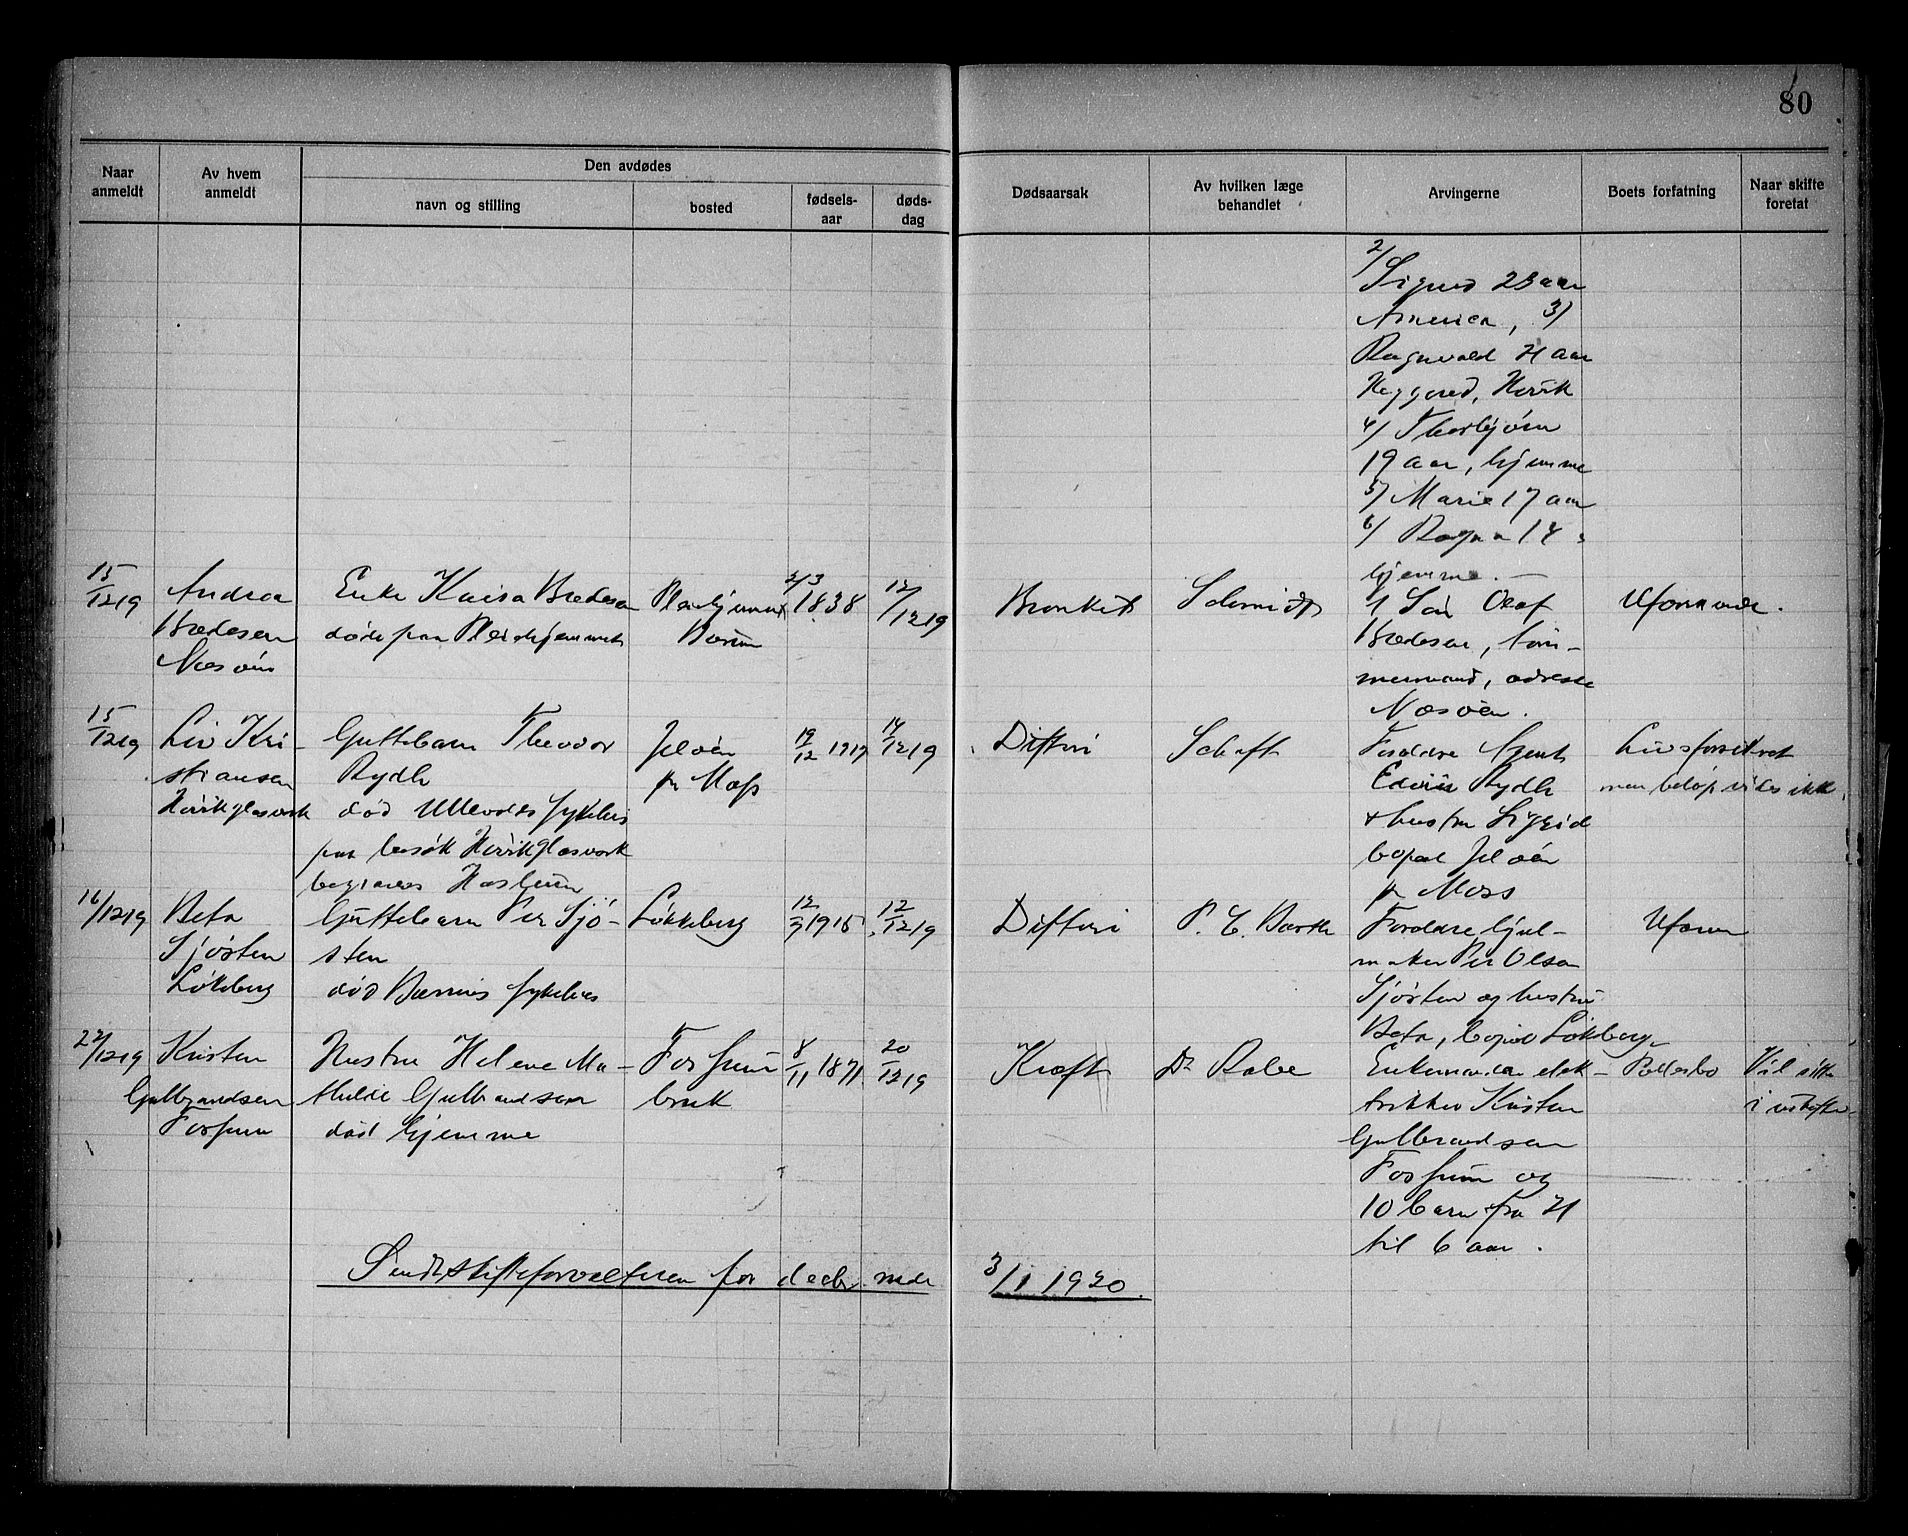 80
Naar anmeldt
Av hvem anmeldt
Den avdødes
navn og stilling
bosted
fødsels-aar
døds-dag
Dødsaarsak
Av hvilken læge behandlet
Arvingerne
Boets forfatning
Naar skifte foretat
2/
Sigurd 23 aar
America, 3/
Ragnvald 21 aar
Høvik
4/ Thorbjørn
19 aar, hjemme
5/ Marie 17 aar
6/ Ragna 14
hjemme.
15/12 19
Andrea
Bredesen
Næsøen
Enke Kaisa Bredesen
døde paa Pleiehjemmet
Pleiehjemmet
Bærum
2/3 1838
12/12 19
Bronkit
Schmidt
1 Søn Olaf
Bredesen, tøm-
mermand, adresse
Næsøen.
15/12 19
Liv Kri-
stiansen
Høvikglasverk
Guttebarn Theodor
Rydh
død Ullevold sykehus
paa besøk Høvikglasverk
begraves Haslum
Jeløen
pr Moss
19/12 1917
14/12 19
Difteri
Schøft
Foreldre Agent
Rydh
& hustru Sigrid
bopæl Jeløen
pr Moss
Livsforsikret
men beløp vides ikke
16/12 19
Beta
Sjøsten
Løkeberg
Guttebarn Per Sjø-
sten
død Bærums sykehus
Løkkeberg
12/9 1915
12/12 19
Difteri
P. C. Barth
Foreldre hjul-
maker Per Olsen
Sjøsten og hustru
Beta, bopæl Løkeberg
Uform
22/12 19
Kristen
Gulbrandsen
Fossum
Hustru Helene Ma-
thilde Gulbrandsen
død hjemme
Fossum
bruk
8/11 1871
20/12 19
Kræft
Dr Rabe
Enkemanden elek-
triker Kristen
Gulbrandsen
Fossum og
10 barn fra 21
til 6 aar.
Fællesbo
Vil sitte
i uskiftet
Sendt skifteforvalteren for decbr. mdr
3/1 1920.